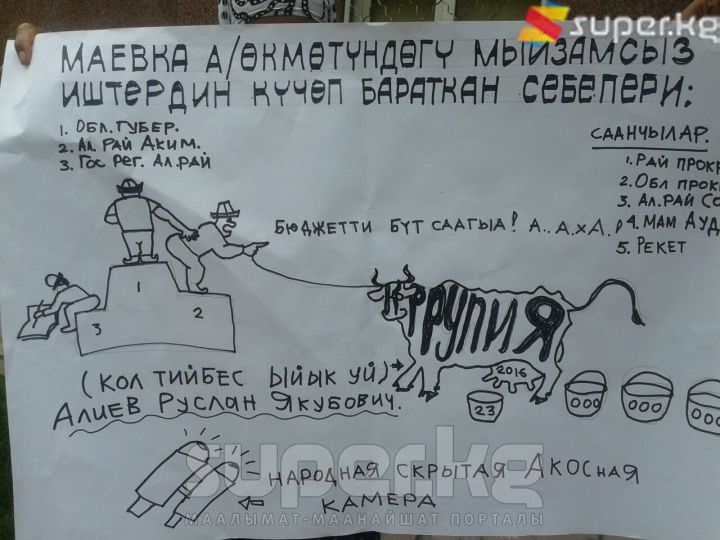 super.kg
МАЕВКА А/ӨКМӨТҮНДӨГҮ МЫЙЗАМСЫЗ
ИШТЕРДИН КҮЧӨП БАРАТКАН СЕБЕПЕРИ:
1. ОБЛ. ГУБЕР.
2. АЛ. РАЙ АКИМ.
3. ГОС РЕГ. АЛ.РАЙ
СААНЧЫЛАР.
1. РАЙ ПРОК
2. ОБЛ ПРОК
3. АЛ. РАЙ СО
4. МАМ АУД
5. РЕКЕТ
БЮДЖЕТТИ БҮТ СААГЫЛА! А.. А.ХА.!
1
2
3
КРРУПИЯ
2016
23
000
000
000
(КОЛ ТИЙБЕС ЫЙЫК УЙ)
АЛИЕВ РУСЛАН ЯКУБОВИЧ.
НАРОДНАЯ СКРЫТАЯ АКОСНАЯ
КАМЕРА
super.kg
МААЛЫМАТ-МААНАЙШАТ ПОРТАЛЫ